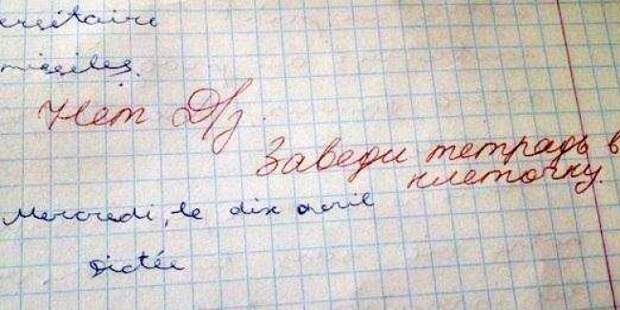 missiles.
Нет Д/з.
Заведи тетрадь в
клеточку.
Mercredi, le dix avril
Dictée